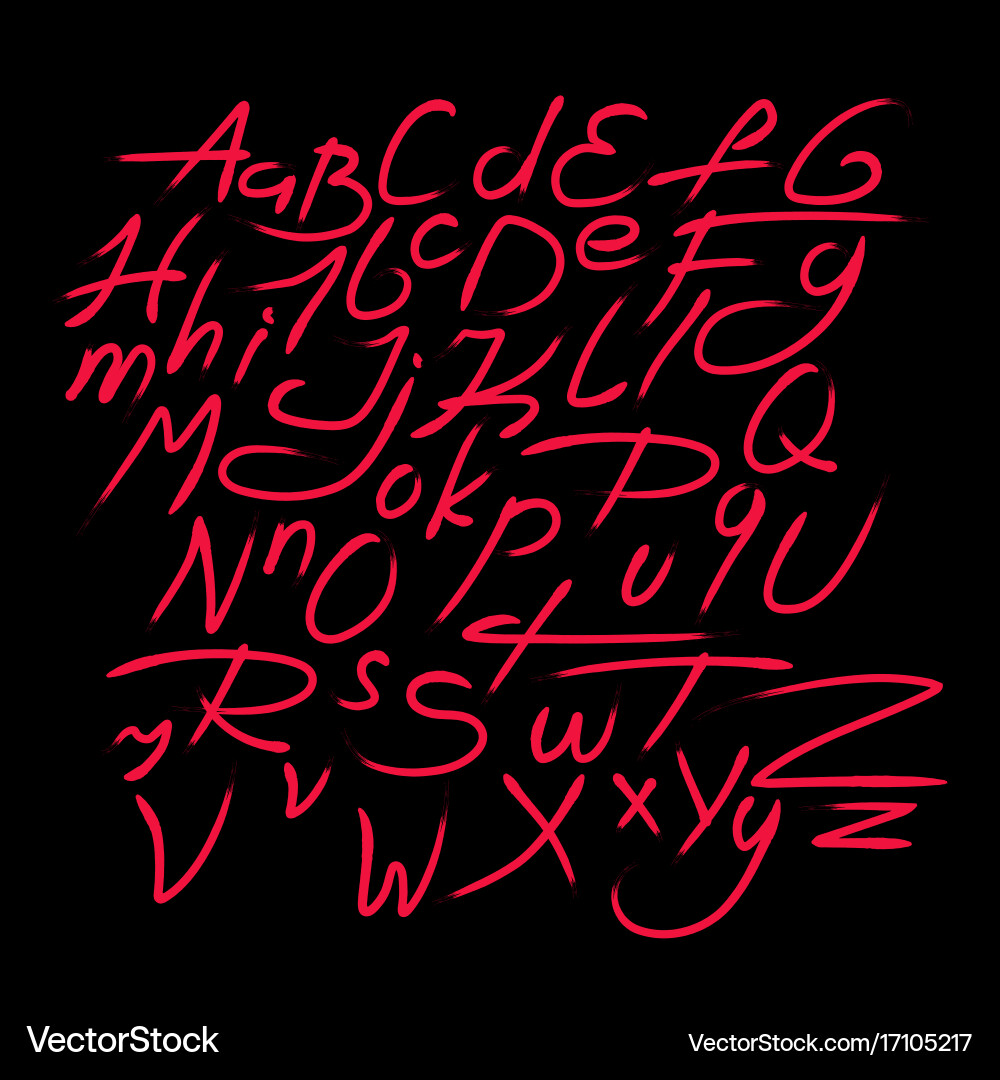 A a B C d E f G
H I b c D e F g
m h i J j K L l
M o k P Q
N n O p u q U
R s S t w T Z
r V v W X x Y y z
VectorStock
VectorStock.com/17105217